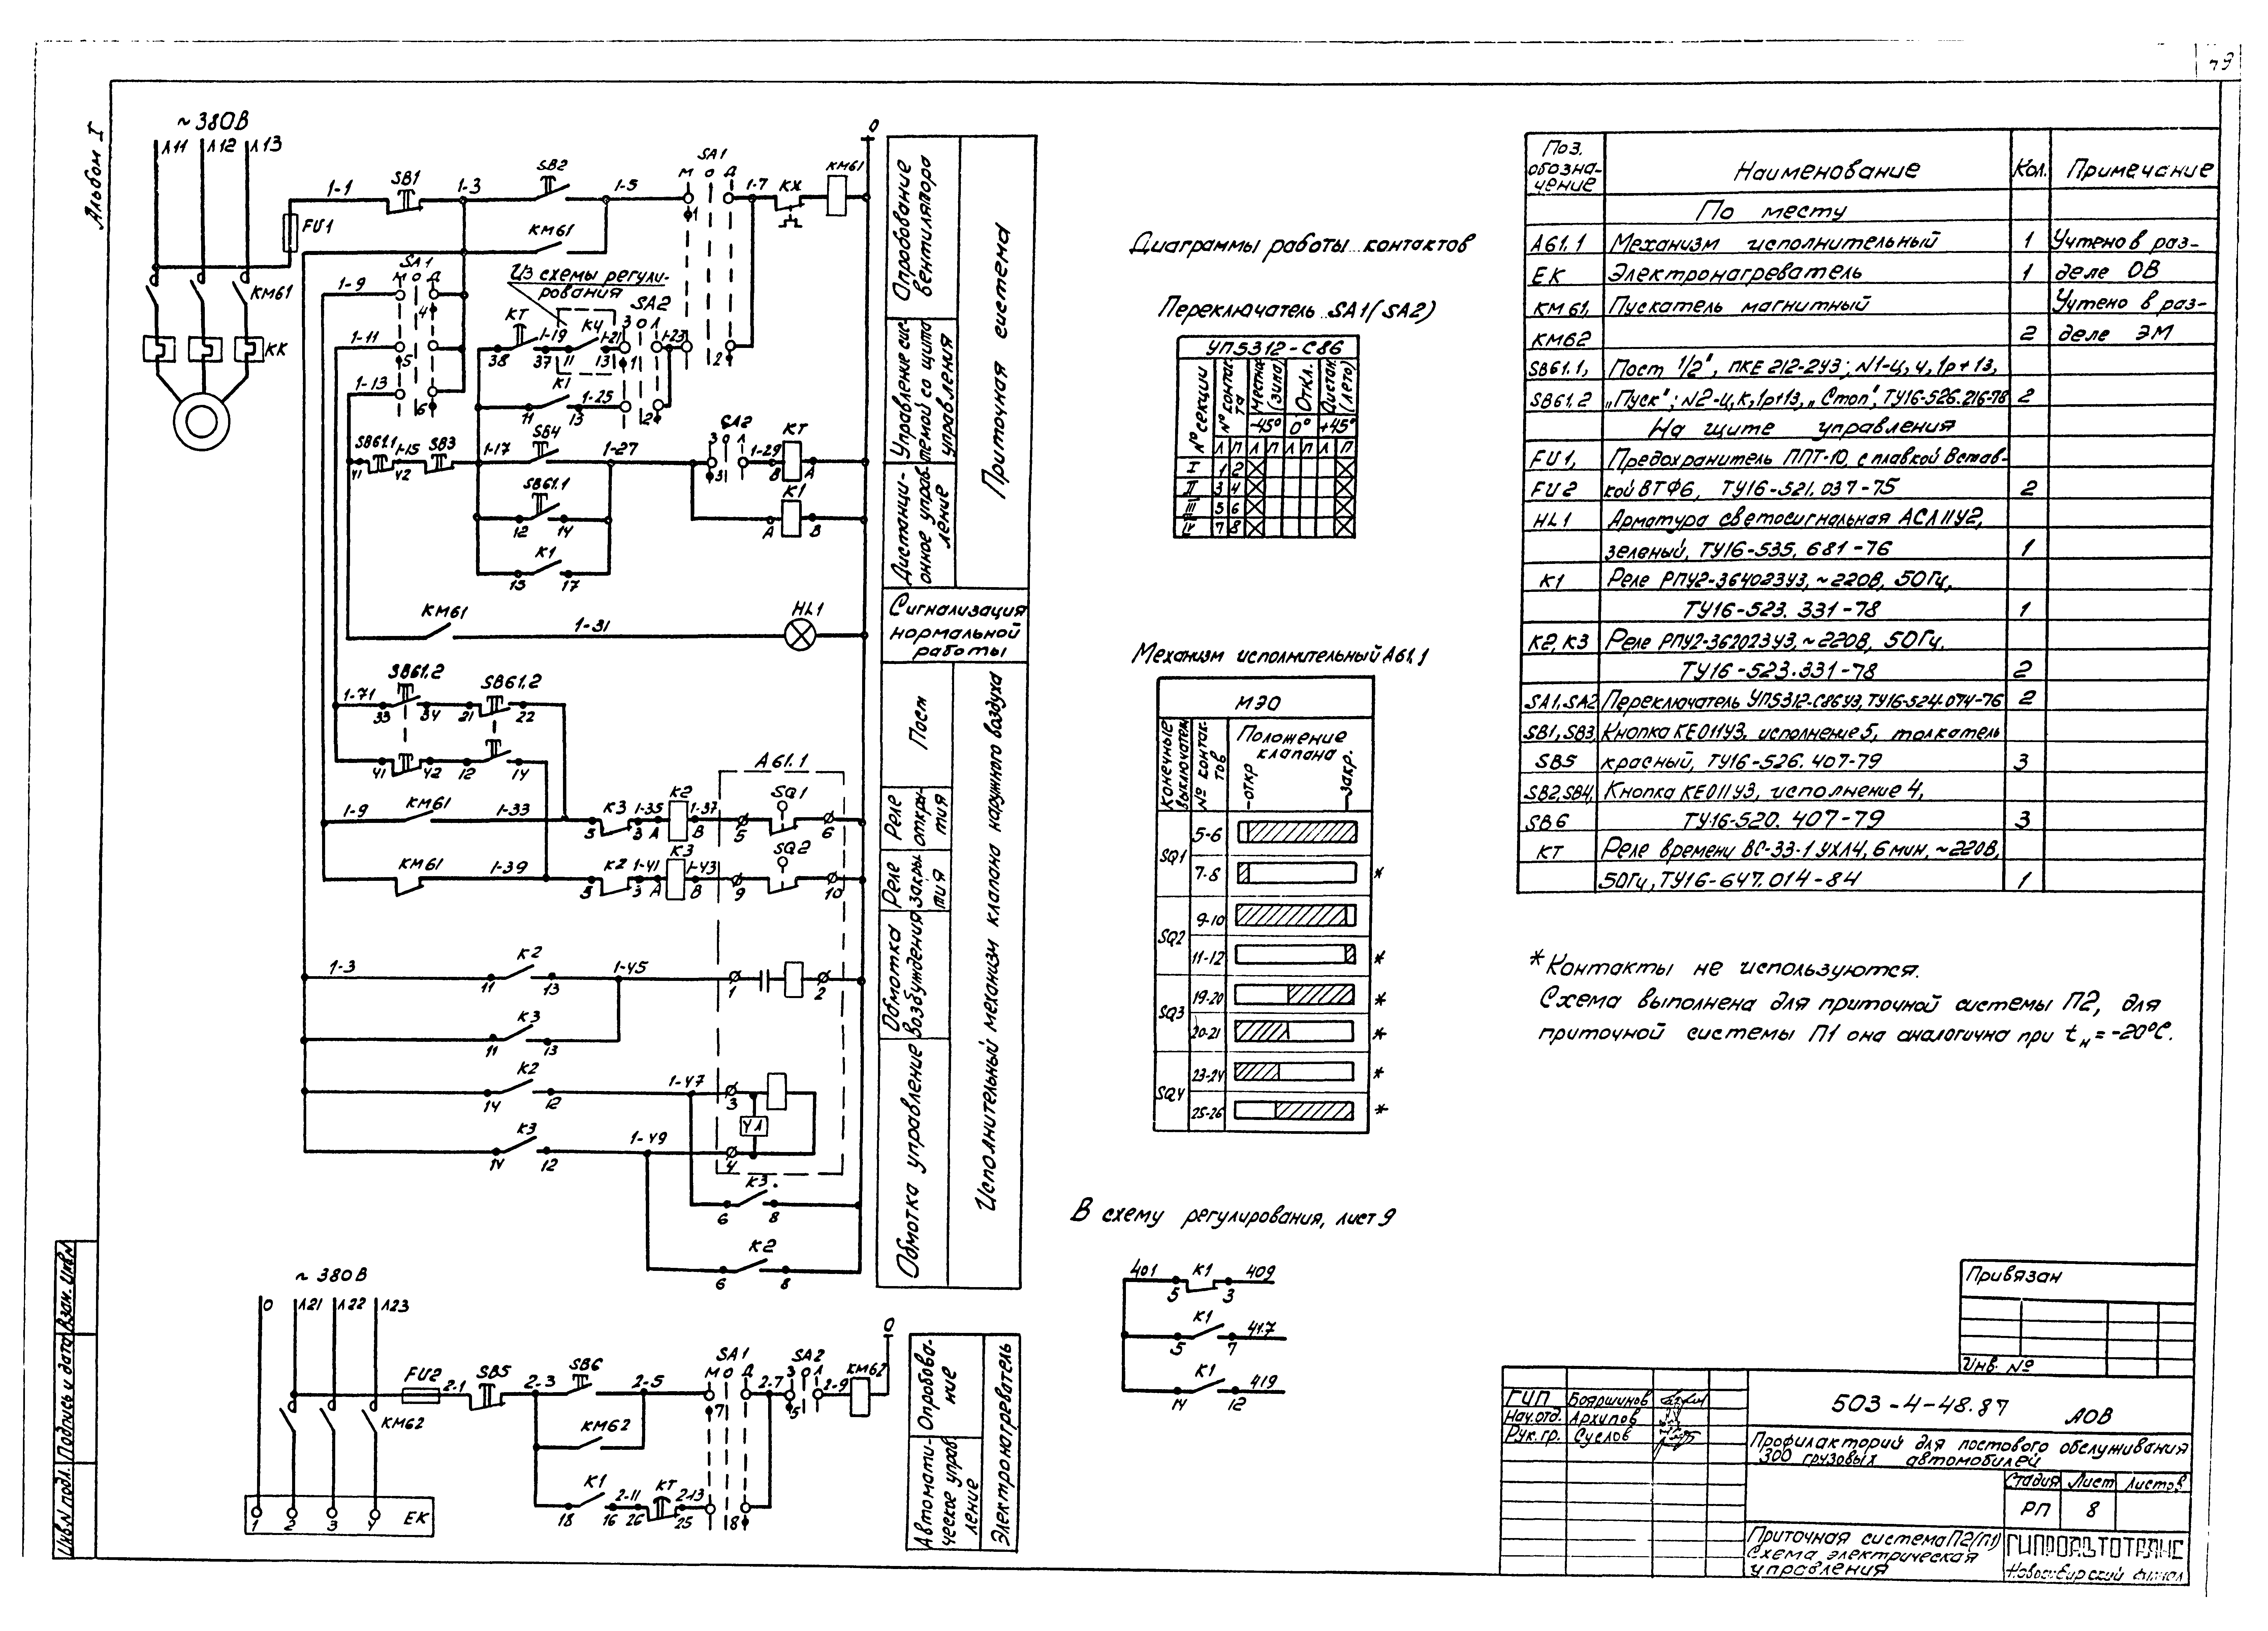 Альбом I
~380В
Л11 Л12 Л13
FU1
1-1
SB1
1-3
SB2
1-5
SA1
М О Д
1-7
КК
КМ61
0
КМ61
SA1
М О Д
1-9
1-11
1-13
КМ61
КК
Из схемы регули-
рования
SA2
З О Л
КТ
1-19
К4
1-21
1-23
38 37 11 13 1 2
К1
1-25
11 13 2
SB61.1
1-15
SB3
1-17
SB4
1-27
SA2
З О Л
1-29
КТ
41 42 3 В А
SB61.1
12 14
К1
А В
К1
13 17
КМ61
1-31
HL1
1-71
SB61.2
SB61.2
33 34 21 22
41 42 12 14
А61.1
1-9
КМ61
1-33
К3
1-35
К2
1-37
SQ1
5 3 А В 5 6
КМ61
1-39
К2
1-41
К3
1-43
SQ2
5 3 А В 9 10
1-3
К2
11 13
1-45
1 2
К3
11 13
К2
14 12
1-47
3
УА
К3
14 12
1-49
4
К3
6 8
К2
6 8
Опробование
вентилятора
Управление сис-
темой со щита
управления
Дистанци-
онное управ-
ление
Приточная система
Сигнализация
нормальной
работы
Пост
Реле
откры-
тия
Реле
закры-
тия
Обмотка
возбуждения
Обмотка управления
Исполнительный механизм клапана наружного воздуха
~380В
0 Л21 Л22 Л23
КМ62
1 2 3 4
ЕК
FU2
2-1
SB5
2-3
SB6
2-5
SA1
М О Д
2-7
SA2
З О Л
2-9
КМ62
0
7 5
КМ62
К1
2-11
КТ
2-13
18 16 26 25 8
Опробова-
ние
Автомати-
ческое управ-
ление
Электронагреватель
Диаграммы работы контактов
Переключатель SA1(SA2)
УП5312-С86
№ секции
№ контак-
та
Местн.
(зима)
-45°
Откл.
0°
Дистан.
(лето)
+45°
Л П Л П Л П Л П
I 1 2
II 3 4
III 5 6
IV 7 8
Механизм исполнительный А61.1
МЭО
Конечные
выключатели
№ контак-
тов
Положение
клапана
откр
закр.
SQ1
5-6
7-8 *
SQ2
9-10
11-12 *
SQ3
19-20 *
20-21 *
SQ4
23-24 *
25-26 *
В схему регулирования, лист 9
401 К1 409
5 3
К1 417
5 7
К1 419
14 12
Поз.
обозна-
чение
Наименование
Кол.
Примечание
По месту
А61.1 Механизм исполнительный 1 Учтено в раз-
ЕК Электронагреватель 1 деле ОВ
КМ61, Пускатель магнитный Учтено в раз-
КМ62 2 деле ЭМ
SB61.1, Пост 1/2", ПКЕ 212-2У3; N1-ц, ч, 1р+13,
SB61.2 „Пуск"; N2-ц, К, 1р+13, „Стоп", ТУ16-526.216-78 2
На щите управления
FU1, Предохранитель ППТ-10, с плавкой встав-
FU2 кой ВТФ6, ТУ16-521.037-75 2
HL1 Арматура светосигнальная АСЛ11У2,
зеленый, ТУ16-535.681-76 1
К1 Реле РПУ2-36402У3, ~220В, 50Гц,
ТУ16-523.331-78 1
К2, К3 Реле РПУ2-36202У3, ~220В, 50Гц.
ТУ16-523.331-78 2
SA1, SA2 Переключатель УП5312-С86У3, ТУ16-524.074-76 2
SB1, SB3, Кнопка КЕ011У3, исполнение 5, толкатель
SB5 красный, ТУ16-526.407-79 3
SB2, SB4, Кнопка КЕ011У3, исполнение 4,
SB6 ТУ16-520.407-79 3
КТ Реле времени ВС-33-1 УХЛ4, 6 мин, ~220В,
50Гц, ТУ16-647.014-84 1
* Контакты не используются.
Схема выполнена для приточной системы П2, для
приточной системы П1 она аналогична при tн=-20°С.
Привязан
Инв. №
503-4-48.87
АОВ
ГИП Бояршинов
Нач.отд. Архипов
Рук.гр. Суслов
Профилакторий для постового обслуживания
300 грузовых автомобилей
Стадия Лист Листов
РП 8
Приточная система П2(П1)
Схема электрическая
управления
ГИПРОАВТОТРАНС
Новосибирский филиал
Инв.N подл. Подпись и дата Взам. инв.N